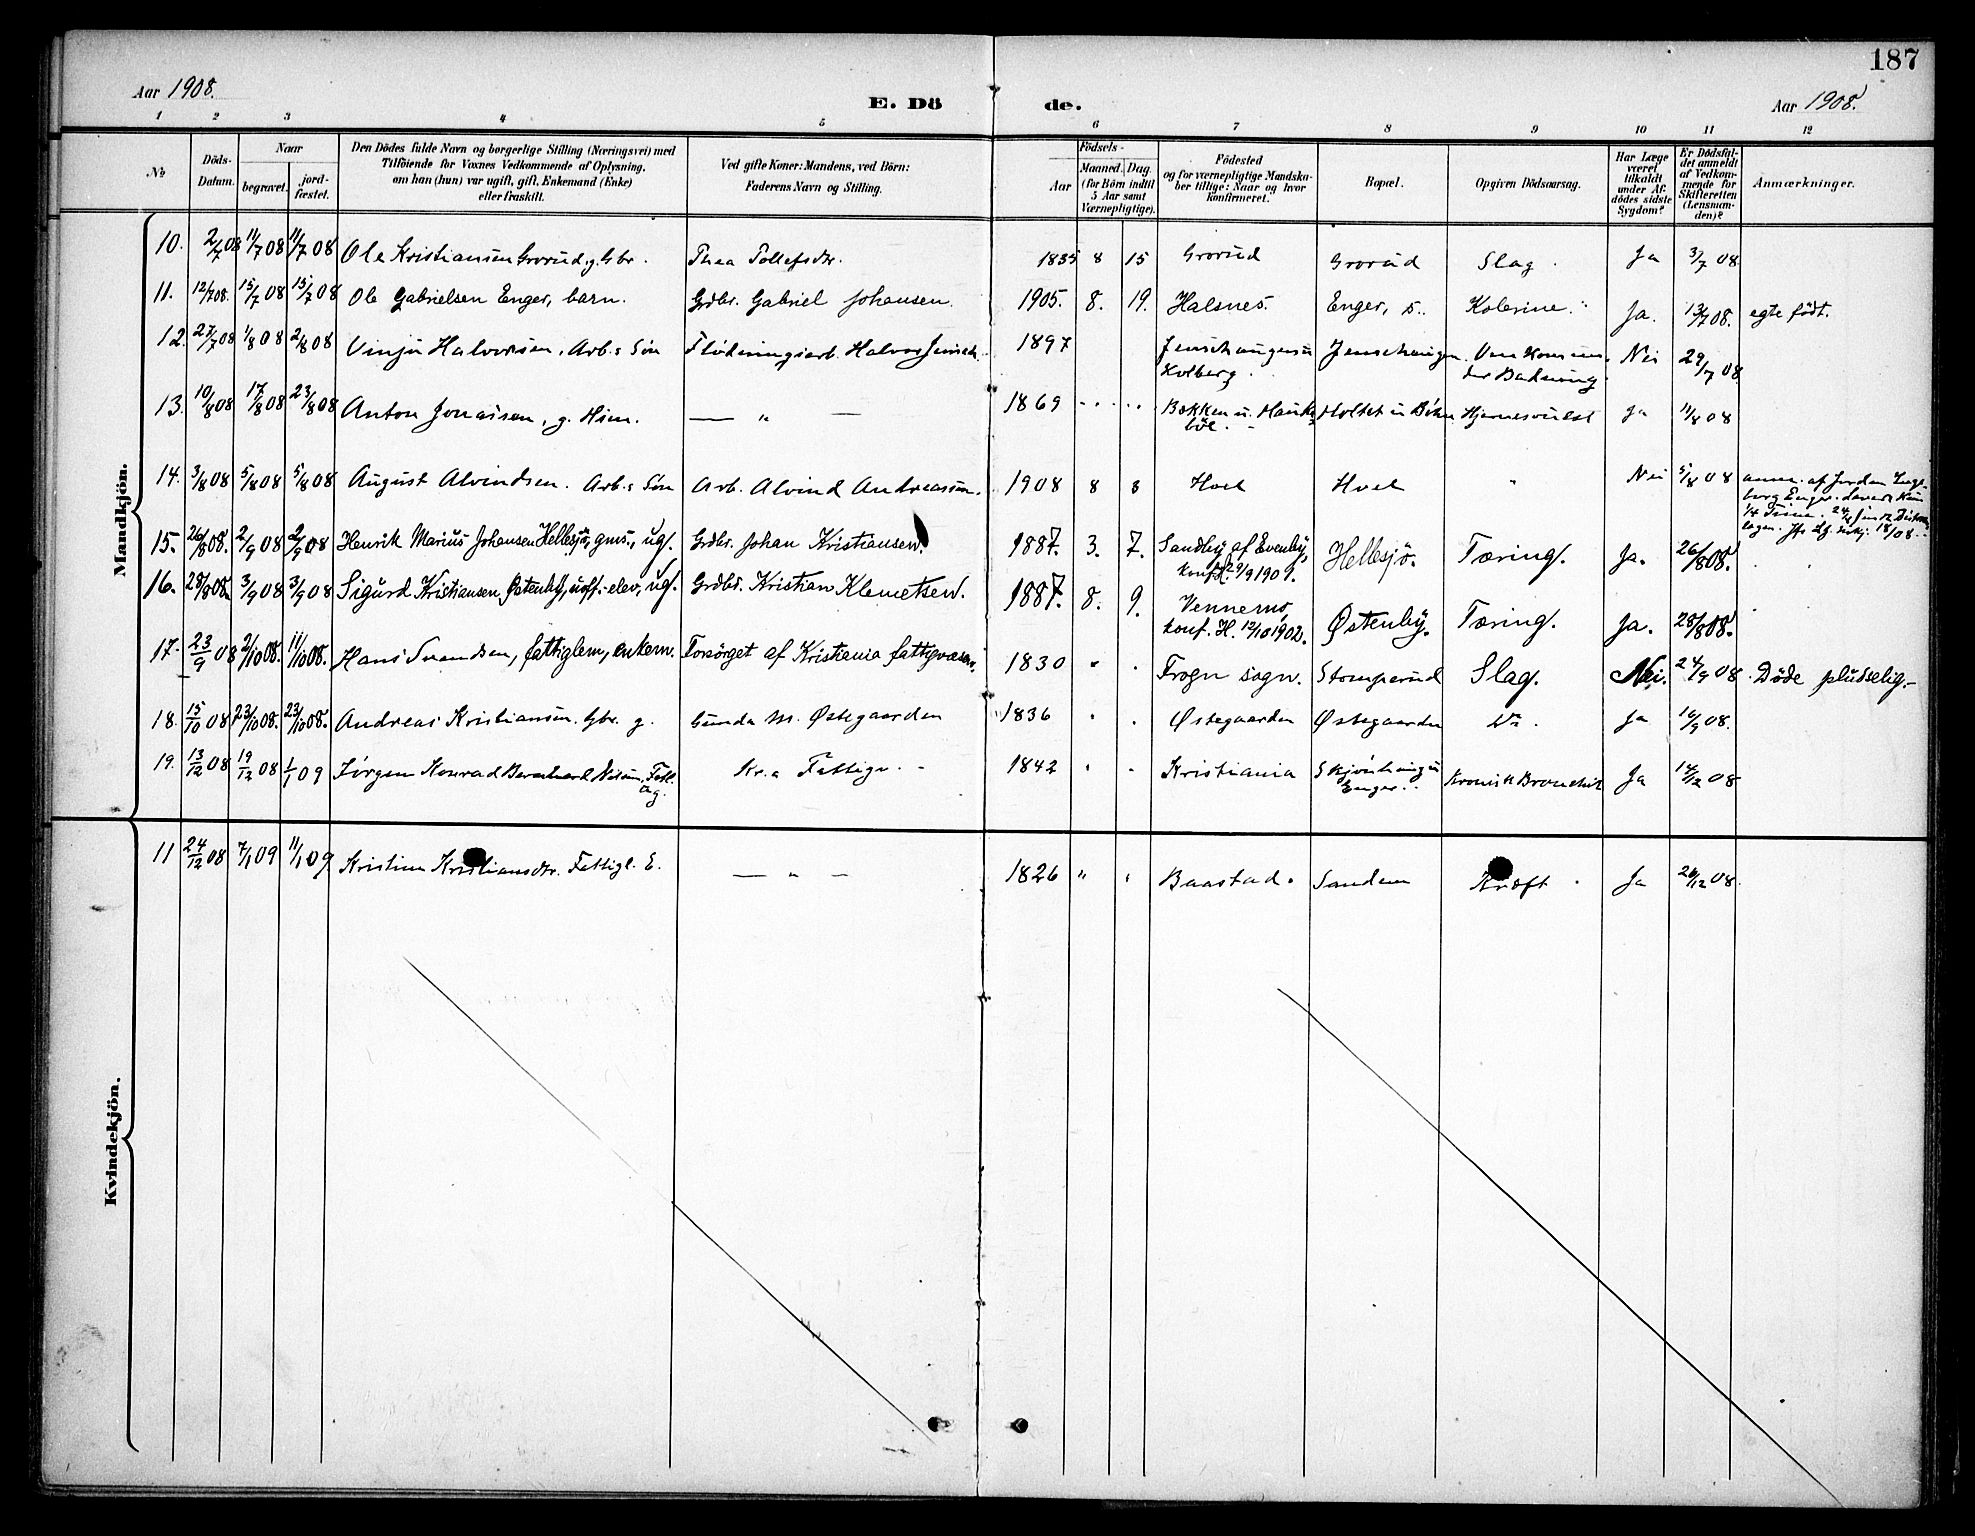 187
Aar 1908.
E. Dö de.
Aar 1908.
1 2 3 4 5 6 7 8 9 10 11 12
No
Döds-Datum.
Naar
begravet.
jord-fæstet.
Den Dödes fulde Navn og borgerlige Stilling (Næringsvei) med
Tilföiende for Voxnes Vedkommende af Oplysning,
om han (hun) var ugift, gift, Enkemand (Enke)
eller fraskilt.
Ved gifte Koner: Mandens, ved Börn:
Faderens Navn og Stilling.
Födsels-
Aar
Maaned. Dag.
(for Börn indtil
5 Aar samt
Værnepligtige).
Födested
og for værnepligtige Mandska-
ber tillige: Naar og hvor
konfirmeret.
Bopæl.
Opgiven Dödsaarsag.
Har Læge
været
tilkaldt
under Af-
dödes sidste
Sygdom?
Er Dødsfal-
det anmeldt
af Vedkom-
mende for
Skifteretten
(Lensman-
den)?
Anmærkninger.
Mandkjön.
10. 2/7 08 11/7 08 11/7 08 Ole Kristiansen Grorud, g. Gbr. Thea Tollefsdtr. 1835 8 15 Grorud Grorud Slag. Ja 3/7 08
11. 12/7 08. 15/7 08 15/7 08 Ole Gabrielsen Enger, barn. Grdbr. Gabriel Johansen. 1905. 8. 19. Halsnes. Enger, s.. Kolerine. Ja. 13/7 08. egte født.
12. 27/7 08 1/8 08 2/8 08 Vinju Halvorsen, Arb.s Søn Flødningsarb. Halvor 1897 Jenshaugen u
Kolberg. Jenshaugen Nei 29/7 08
13. 10/8 08 17/8 08 23/8 08 Anton Jonassen, g. — „ — 1869 Bakken u. Holtet u Ja 11/8 08
14. 3/8 08 5/8 08 5/8 08 August Alvindsen. Arb.s Søn Arb. Alvind Andreassen. 1908 8 3 Hoel Hoel „ Nei 5/8 08 anm. af Jordem.
15. 26/8 08. 2/9 08 2/9 08 Henrik Marius Johansen Hellesjø, gms., ug. Grdbr. Johan Kristiansen. 1887. 3. 7. Sandby af Evenby,
Hellesjö. Tæring. Ja. 26/8 08.
16. 28/8 08. 3/9 08 3/9 08 Sigurd Kristiansen Østenby, uoff.-elev, ug. Grdbr. Kristian Klemetsen. 1887. 8. 9. Vennernö,
konf. H. 12/10 1902. Østenby. Tæring. Ja. 28/8 08.
17. 23/9 08 2/10 08. 11/10 08. Hans Svendsen, fattiglem, enkem. Forsörget af Kristiania fattigvæsen. 1830 „ Frogn sogn. Stomperud Slag. Nei. 24/9 08 Döde pludselig.
18. 15/10 08 23/10 08. 23/10 08. Andreas Kristiansen. Gbr. g. Gunda M. Østegaarden 1836 Østegaarden Østegaarden Ja 16/9 08.
19. 13/12 08 19/12 08 1/1 09 Jørgen Konrad Bernhard Nilsen, Fatl.
ug. Kr.a Fattigv. 1842 Kristiania
Enger. Kronisk Bronchit Ja 14/12 08
Kvindekjön.
11 24/12 08 7/1 09 11/1 09 Kristine Kristiansdtr. Fattigl. E. — „ — 1826 „ Baastad. Sandem Kræft Ja 26/12 08.